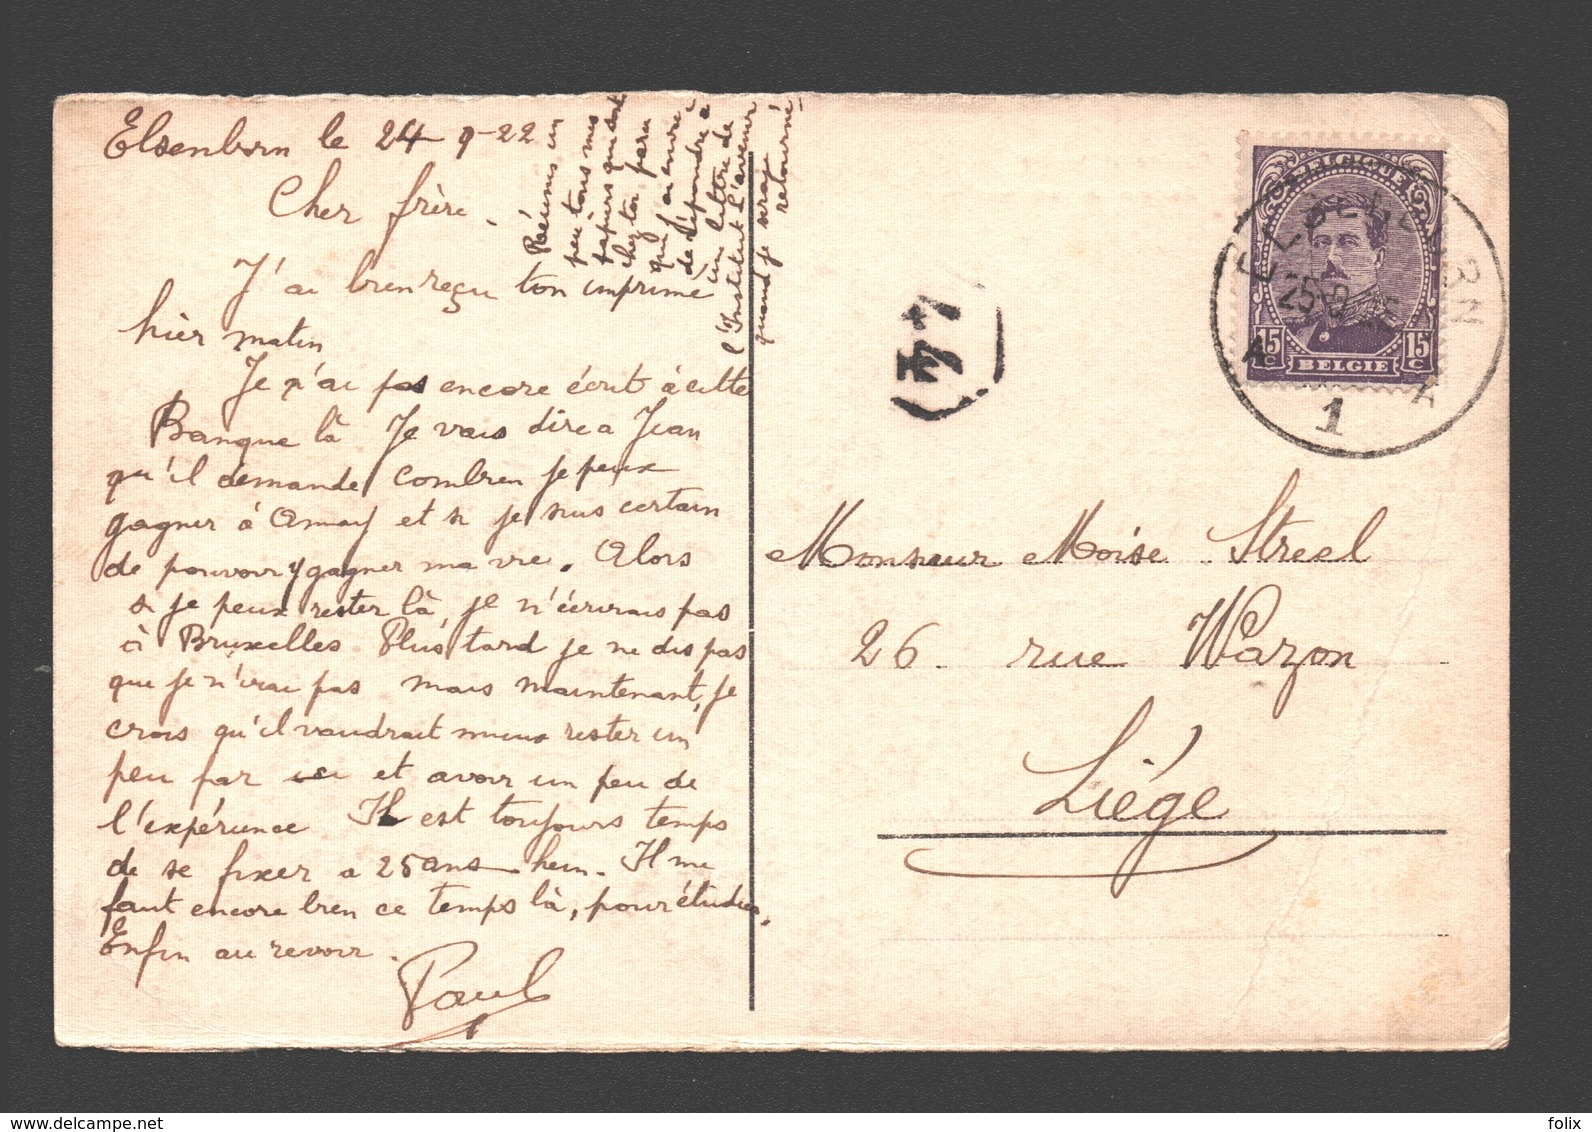 Elsenborn le 24 9-22
Cher frère.
J'ai bien reçu ton imprimé
hier matin
Je n'ai pas encore écrit à cette
Banque là Je vais dire a Jean
qu'il demande combien je peux
gagner à Amay et si je suis certain
de pouvoir y gagner ma vie. Alors
si je peux rester là, je n'écrirais pas
à Bruxelles. Plus tard je ne dis pas
que je n'irai pas mais maintenant, je
crois qu'il vaudrait mieux rester un
peu par ici et avoir un peu de
l'expérience Il est toujours temps
de se fixer a 25 ans hein. Il me
faut encore bien ce temps là, pour étudier.
Enfin au revoir.
Paul
Réunis un
peu tous mes
papiers qui sont
chez toi parce
qu'j'ai envie
de répondre a
un lettre de
l'Institut L'avenir
quand je serai
retourné
BELGIQUE
15 c
BELGIE
15 c
ELSENBORN
25
A
A
1
Monsieur Moïse Streel
26. rue Wazon
Liège
delcampe.net
folix